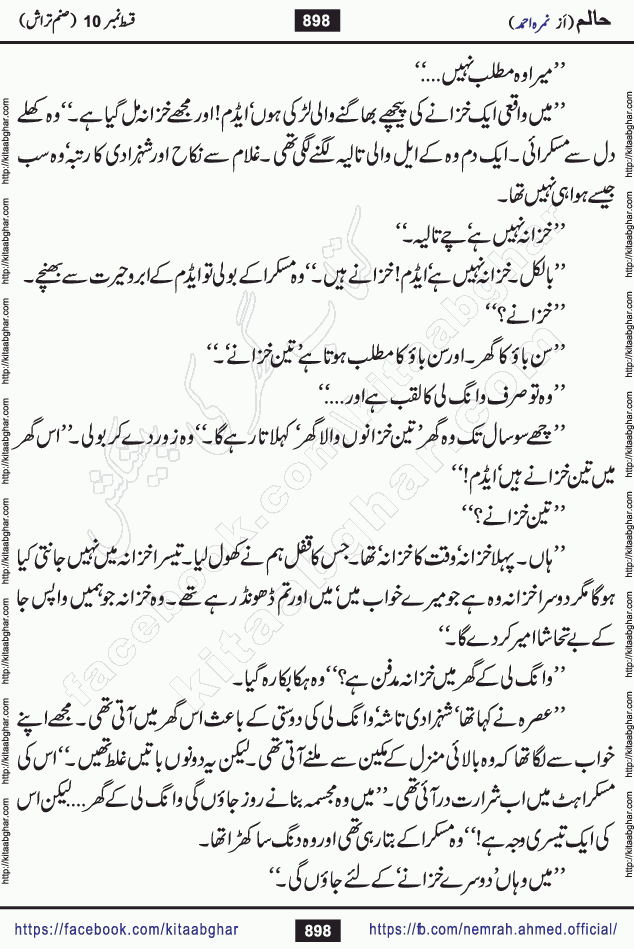 حالم (از نمرہ احمد) 898 قسط نمبر 10 (صنم تراش)
’’میرا وہ مطلب نہیں....‘‘
’’میں واقعی ایک خزانے کی پیچھے بھاگنے والی لڑکی ہوں‘ ایڈم! اور مجھے خزانہ مل گیا ہے۔‘‘ وہ کھلے
دل سے مسکرائی۔ ایک دم وہ کے ایل والی تالیہ لگنے لگی تھی۔ غلام سے نکاح اور شہزادی کا رتبہ‘ وہ سب
جیسے ہوا ہی نہیں تھا۔
’’خزانہ نہیں ہے‘ چے تالیہ۔‘‘
’’بالکل۔ خزانہ نہیں ہے‘ ایڈم! خزانے ہیں۔‘‘ وہ مسکرا کے بولی تو ایڈم کے ابرو حیرت سے بھنچے۔
’’خزانے؟‘‘
’’سن باؤ کا گھر۔ اور سن باؤ کا مطلب ہوتا ہے ’تین خزانے‘۔‘‘
’’وہ تو صرف وانگ لی کا لقب ہے اور....‘‘
’’چھے سو سال تک وہ گھر ’تین خزانوں والا گھر‘ کہلاتا رہے گا۔‘‘ وہ زور دے کر بولی۔ ’’اس گھر
میں تین خزانے ہیں‘ ایڈم!‘‘
’’تین خزانے؟‘‘
’’ہاں۔ پہلا خزانہ‘ وقت کا خزانہ‘ تھا۔ جس کا قفل ہم نے کھول لیا۔ تیسرا خزانہ میں نہیں جانتی کیا
ہوگا مگر دوسرا خزانہ وہ ہے جو میرے خواب میں‘ میں اور تم ڈھونڈ رہے تھے۔ وہ خزانہ جو ہمیں واپس جا
کے بے تحاشا امیر کردے گا۔‘‘
’’وانگ لی کے گھر میں خزانہ مدفن ہے؟‘‘ وہ ہکا بکا رہ گیا۔
’’عصرہ نے کہا تھا‘ شہزادی تاشہ‘ وانگ لی کی دوستی کے باعث اس گھر میں آتی تھی۔ مجھے اپنے
خواب سے لگا تھا کہ وہ بالائی منزل کے مکین سے ملنے آتی تھی۔ لیکن یہ دونوں باتیں غلط تھیں۔‘‘ اس کی
مسکراہٹ میں اب شرارت در آئی تھی۔ ’’میں وہ مجسمہ بنانے روز جاؤں گی وانگ لی کے گھر.... لیکن اس
کی ایک تیسری وجہ ہے!‘‘ وہ مسکرا کے بتا رہی تھی اور وہ دنگ سا کھڑا تھا۔
’’میں وہاں ’دوسرے خزانے‘ کے لئے جاؤں گی۔‘‘
http://kitaabghar.com http://kitaabghar.com http://kitaabghar.com http://kitaabghar.com http://kitaabghar.com http://kitaabghar.com http://kitaabghar.com http://kitaabghar.com
http://kitaabghar.com http://kitaabghar.com http://kitaabghar.com http://kitaabghar.com http://kitaabghar.com http://kitaabghar.com http://kitaabghar.com http://kitaabghar.com
کتاب گھر کی پیشکش
facebook.com/kitaabghar
kitaabghar.com
https://facebook.com/kitaabghar 898 https://fb.com/nemrah.ahmed.official/